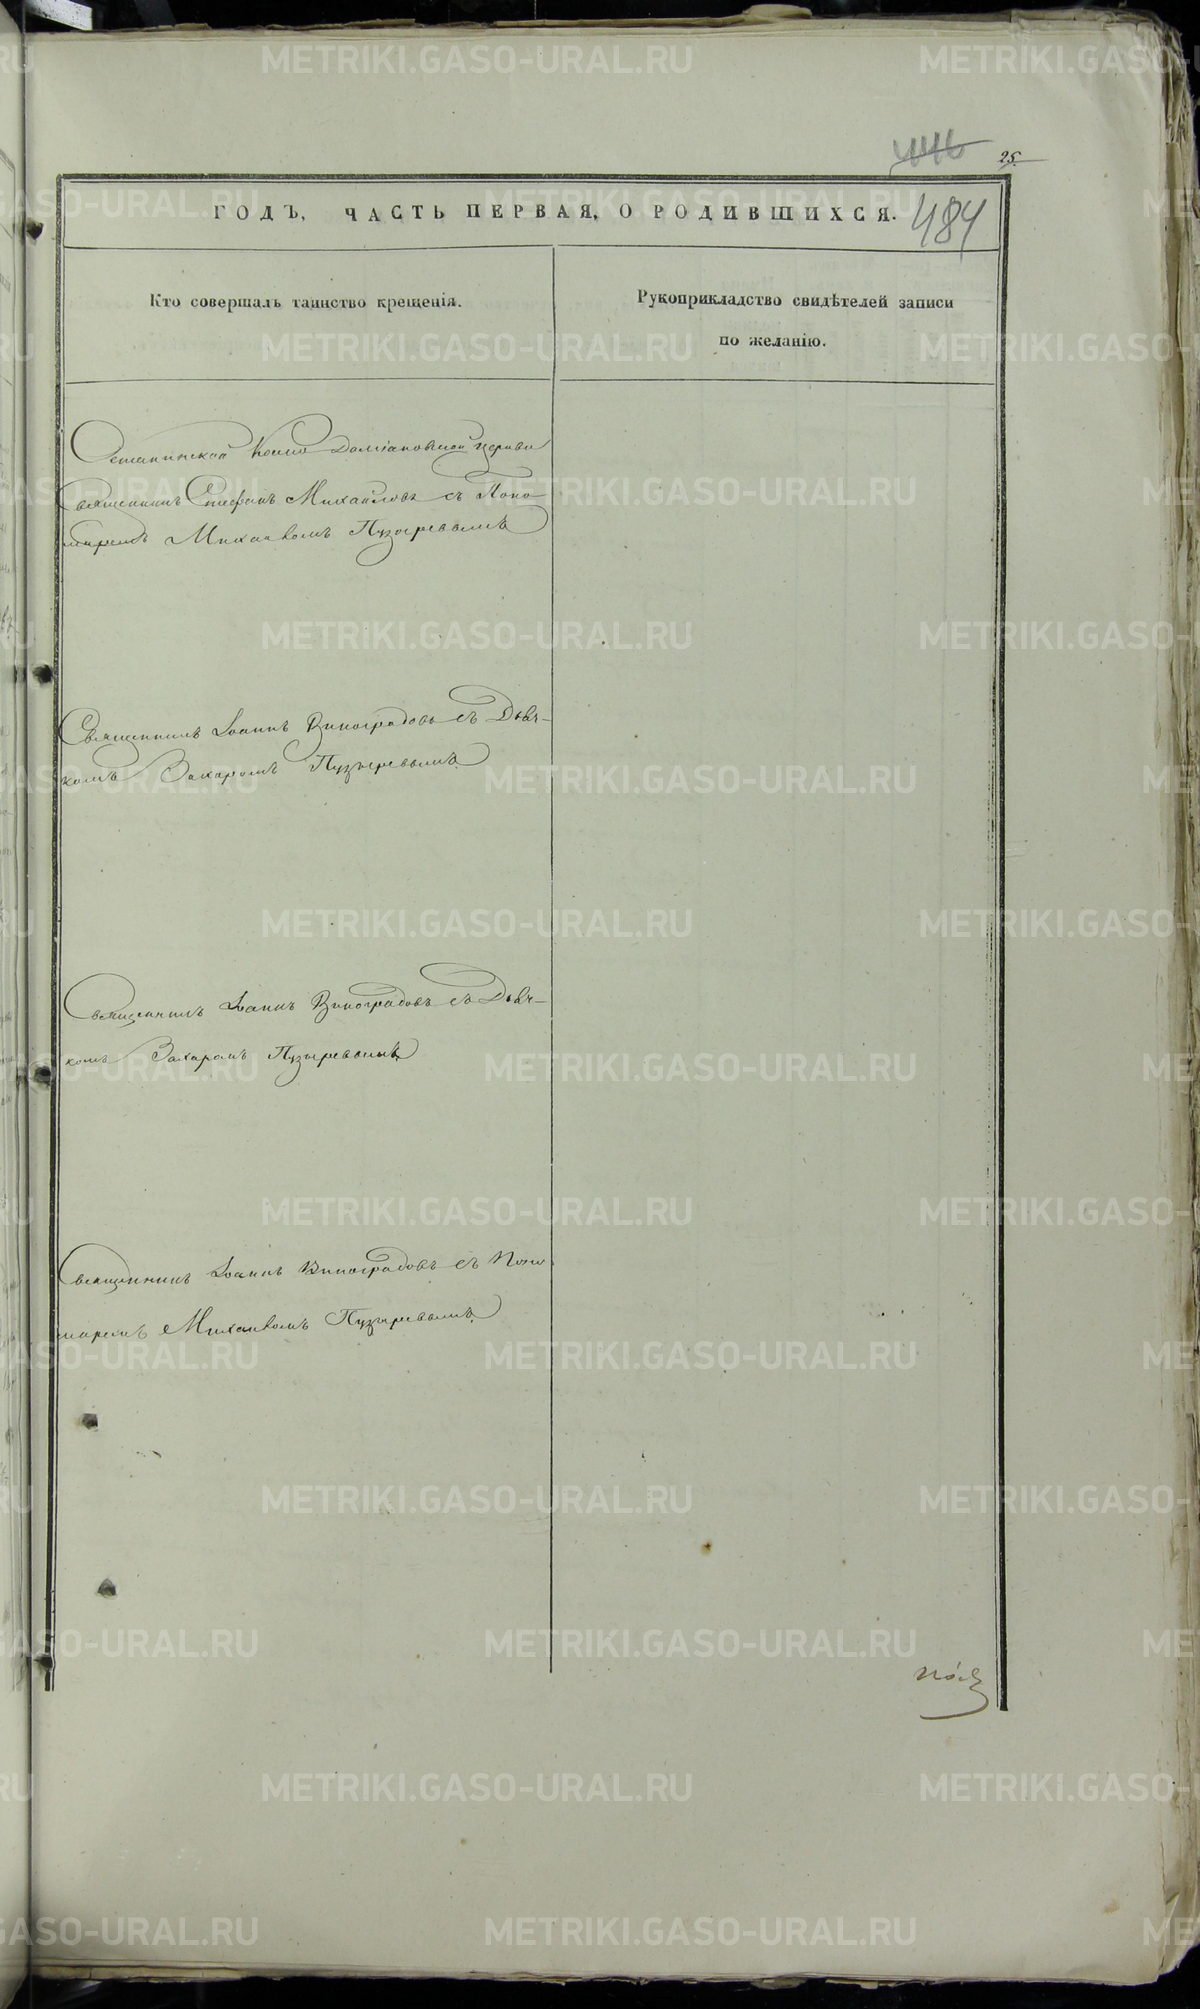 446 25.
ГОДЪ, ЧАСТЬ ПЕРВАЯ, О РОДИВШИХСЯ. 484
Кто совершалъ таинство крещенія.
Рукоприкладство свидѣтелей записи
по желанію.
Останинской Космо Даміановской церкви
Священникъ Стефанъ Михайловъ съ Поно-
маремъ Михаиломъ Пузыревымъ
Священникъ Іоаннъ Виноградовъ съ Дьяч-
комъ Захаромъ Пузыревымъ.
Священникъ Іоаннъ Виноградовъ съ Дьяч-
комъ Захаромъ Пузыревымъ.
Священникъ Іоаннъ Виноградовъ съ Поно
маремъ Михаиломъ Пузыревымъ.
METRIKI.GASO-URAL.RU